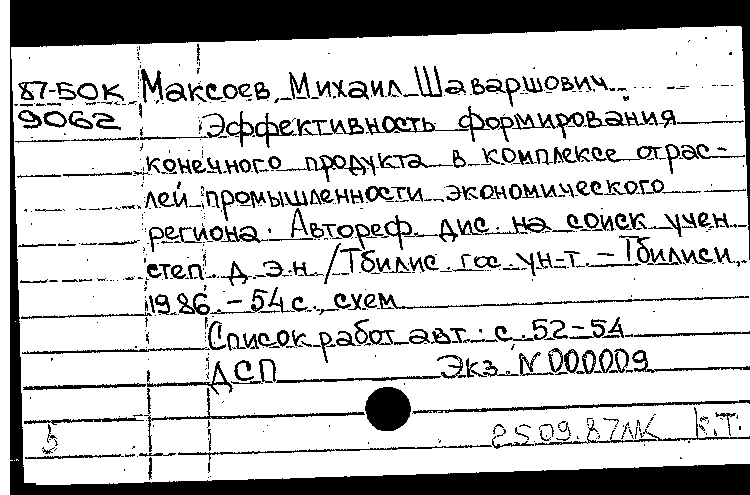 87-БОК Максоев, Михаил Шаваршович.
9062 Эффективность формирования
конечного продукта в комплексе отрас-
лей промышленности экономического
региона. Автореф. дис. на соиск учен
степ. д. э.н. /Тбилис. гос. ун-т. – Тбилиси,
1986. – 54 с., схем
Список работ авт.: с. 52–54
ДСП Экз. N 000009
25.09.87 К.Т.